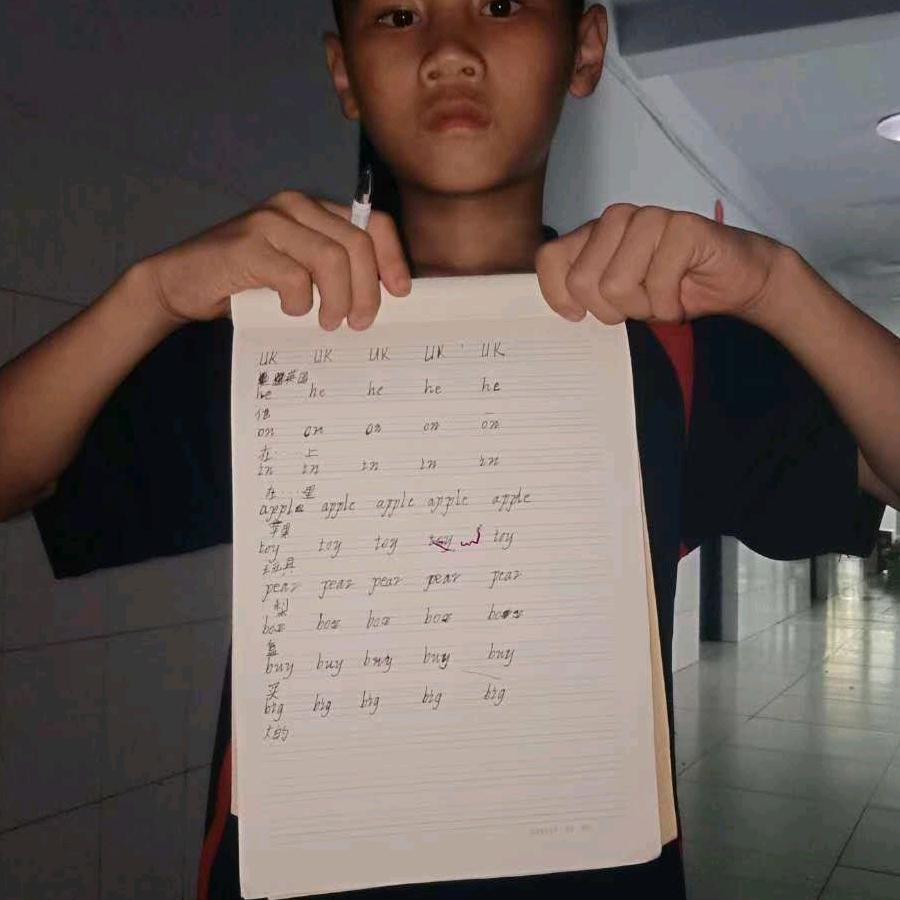 UK UK UK UK UK
英国
he he he he he
他
on on on on on
在 上
in in in in in
在 … 里
apple apple apple apple apple
苹果
toy toy toy toy toy
玩具
pear pear pear pear pear
梨
box box box box box
盒
buy buy buy buy buy
买
big big big big big
大的